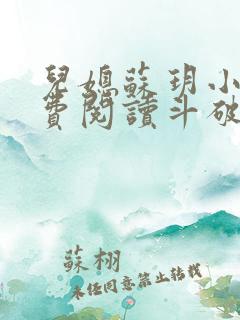 兒媳蘇玥小
費閱讀斗破
蘇栩
未经同意禁止转载